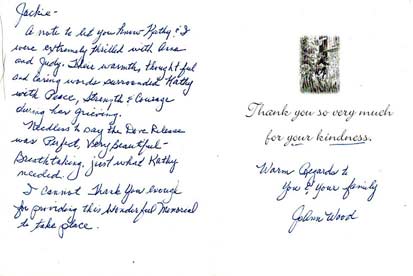 Jackie -
A note to let you know Kathy & I
were extremely thrilled with Ana
and Judy. There warmth, thoughtful
and caring words surrounded Kathy
with Peace, Strength & Courage
during her grieving.
Needless to say the Dove Release
was Perfect, Very beautiful -
Breathtaking. just what Kathy
needed.
I cannot Thank You enough
for providing this Wonderful Memorial
to take place.
Thank you so very much
for your kindness.
Warm Regards to
You & Your family
JoAnn Wood